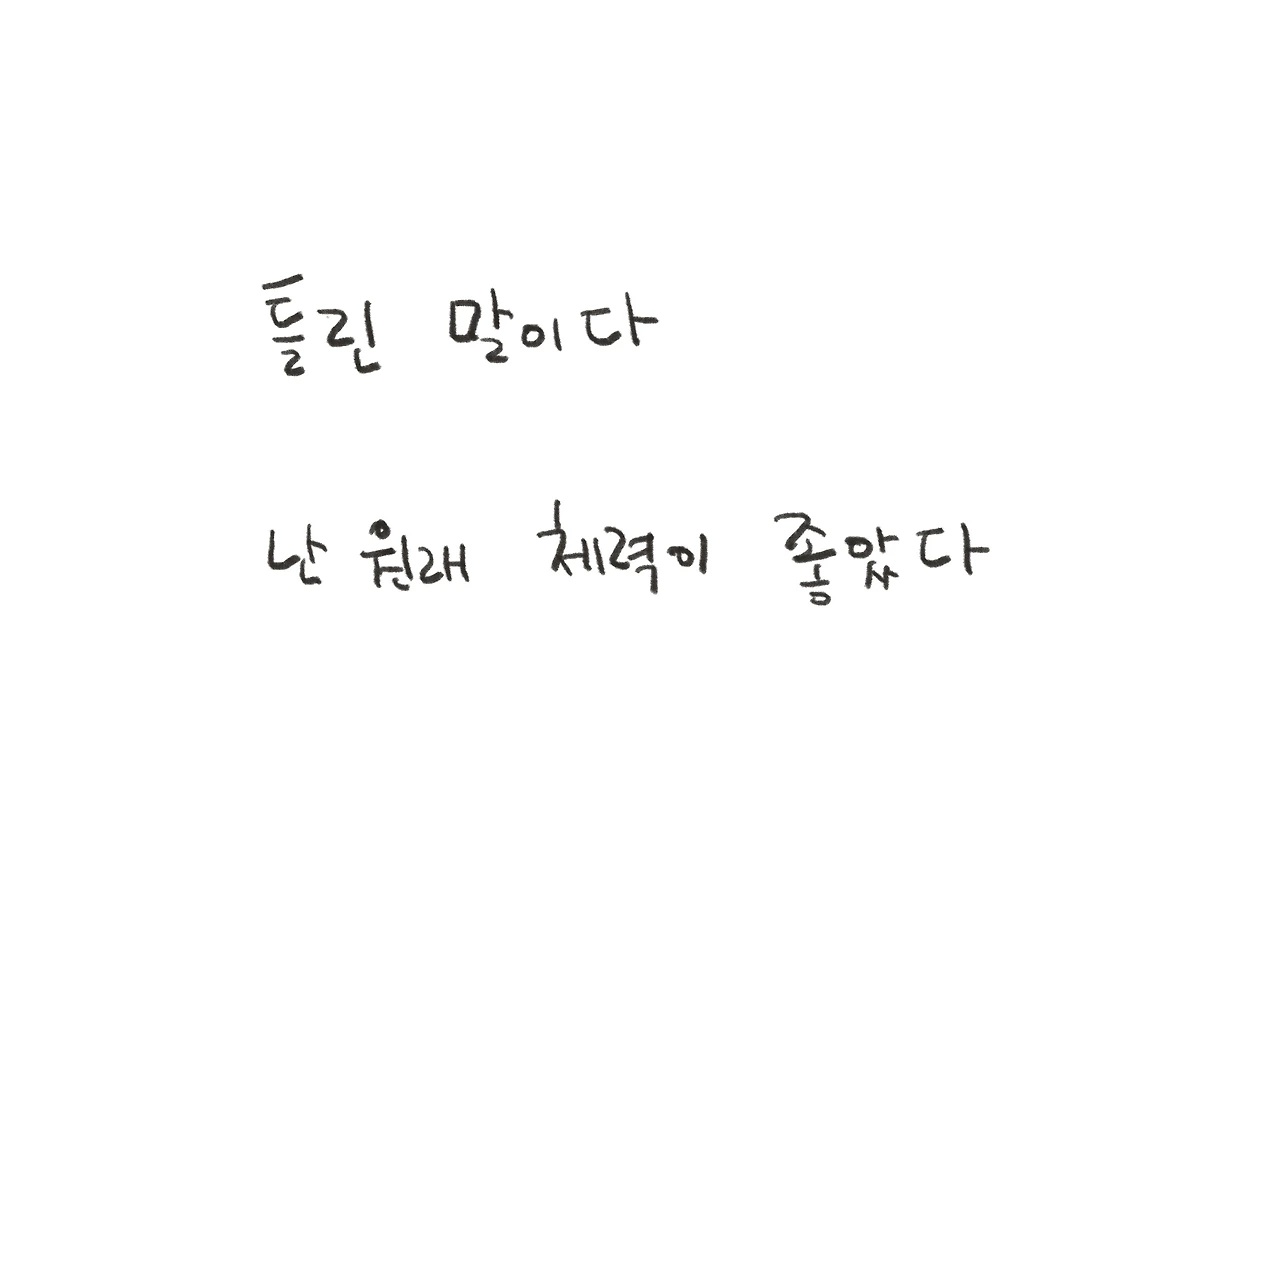 틀린 말이다
난 원래 체력이 좋았다